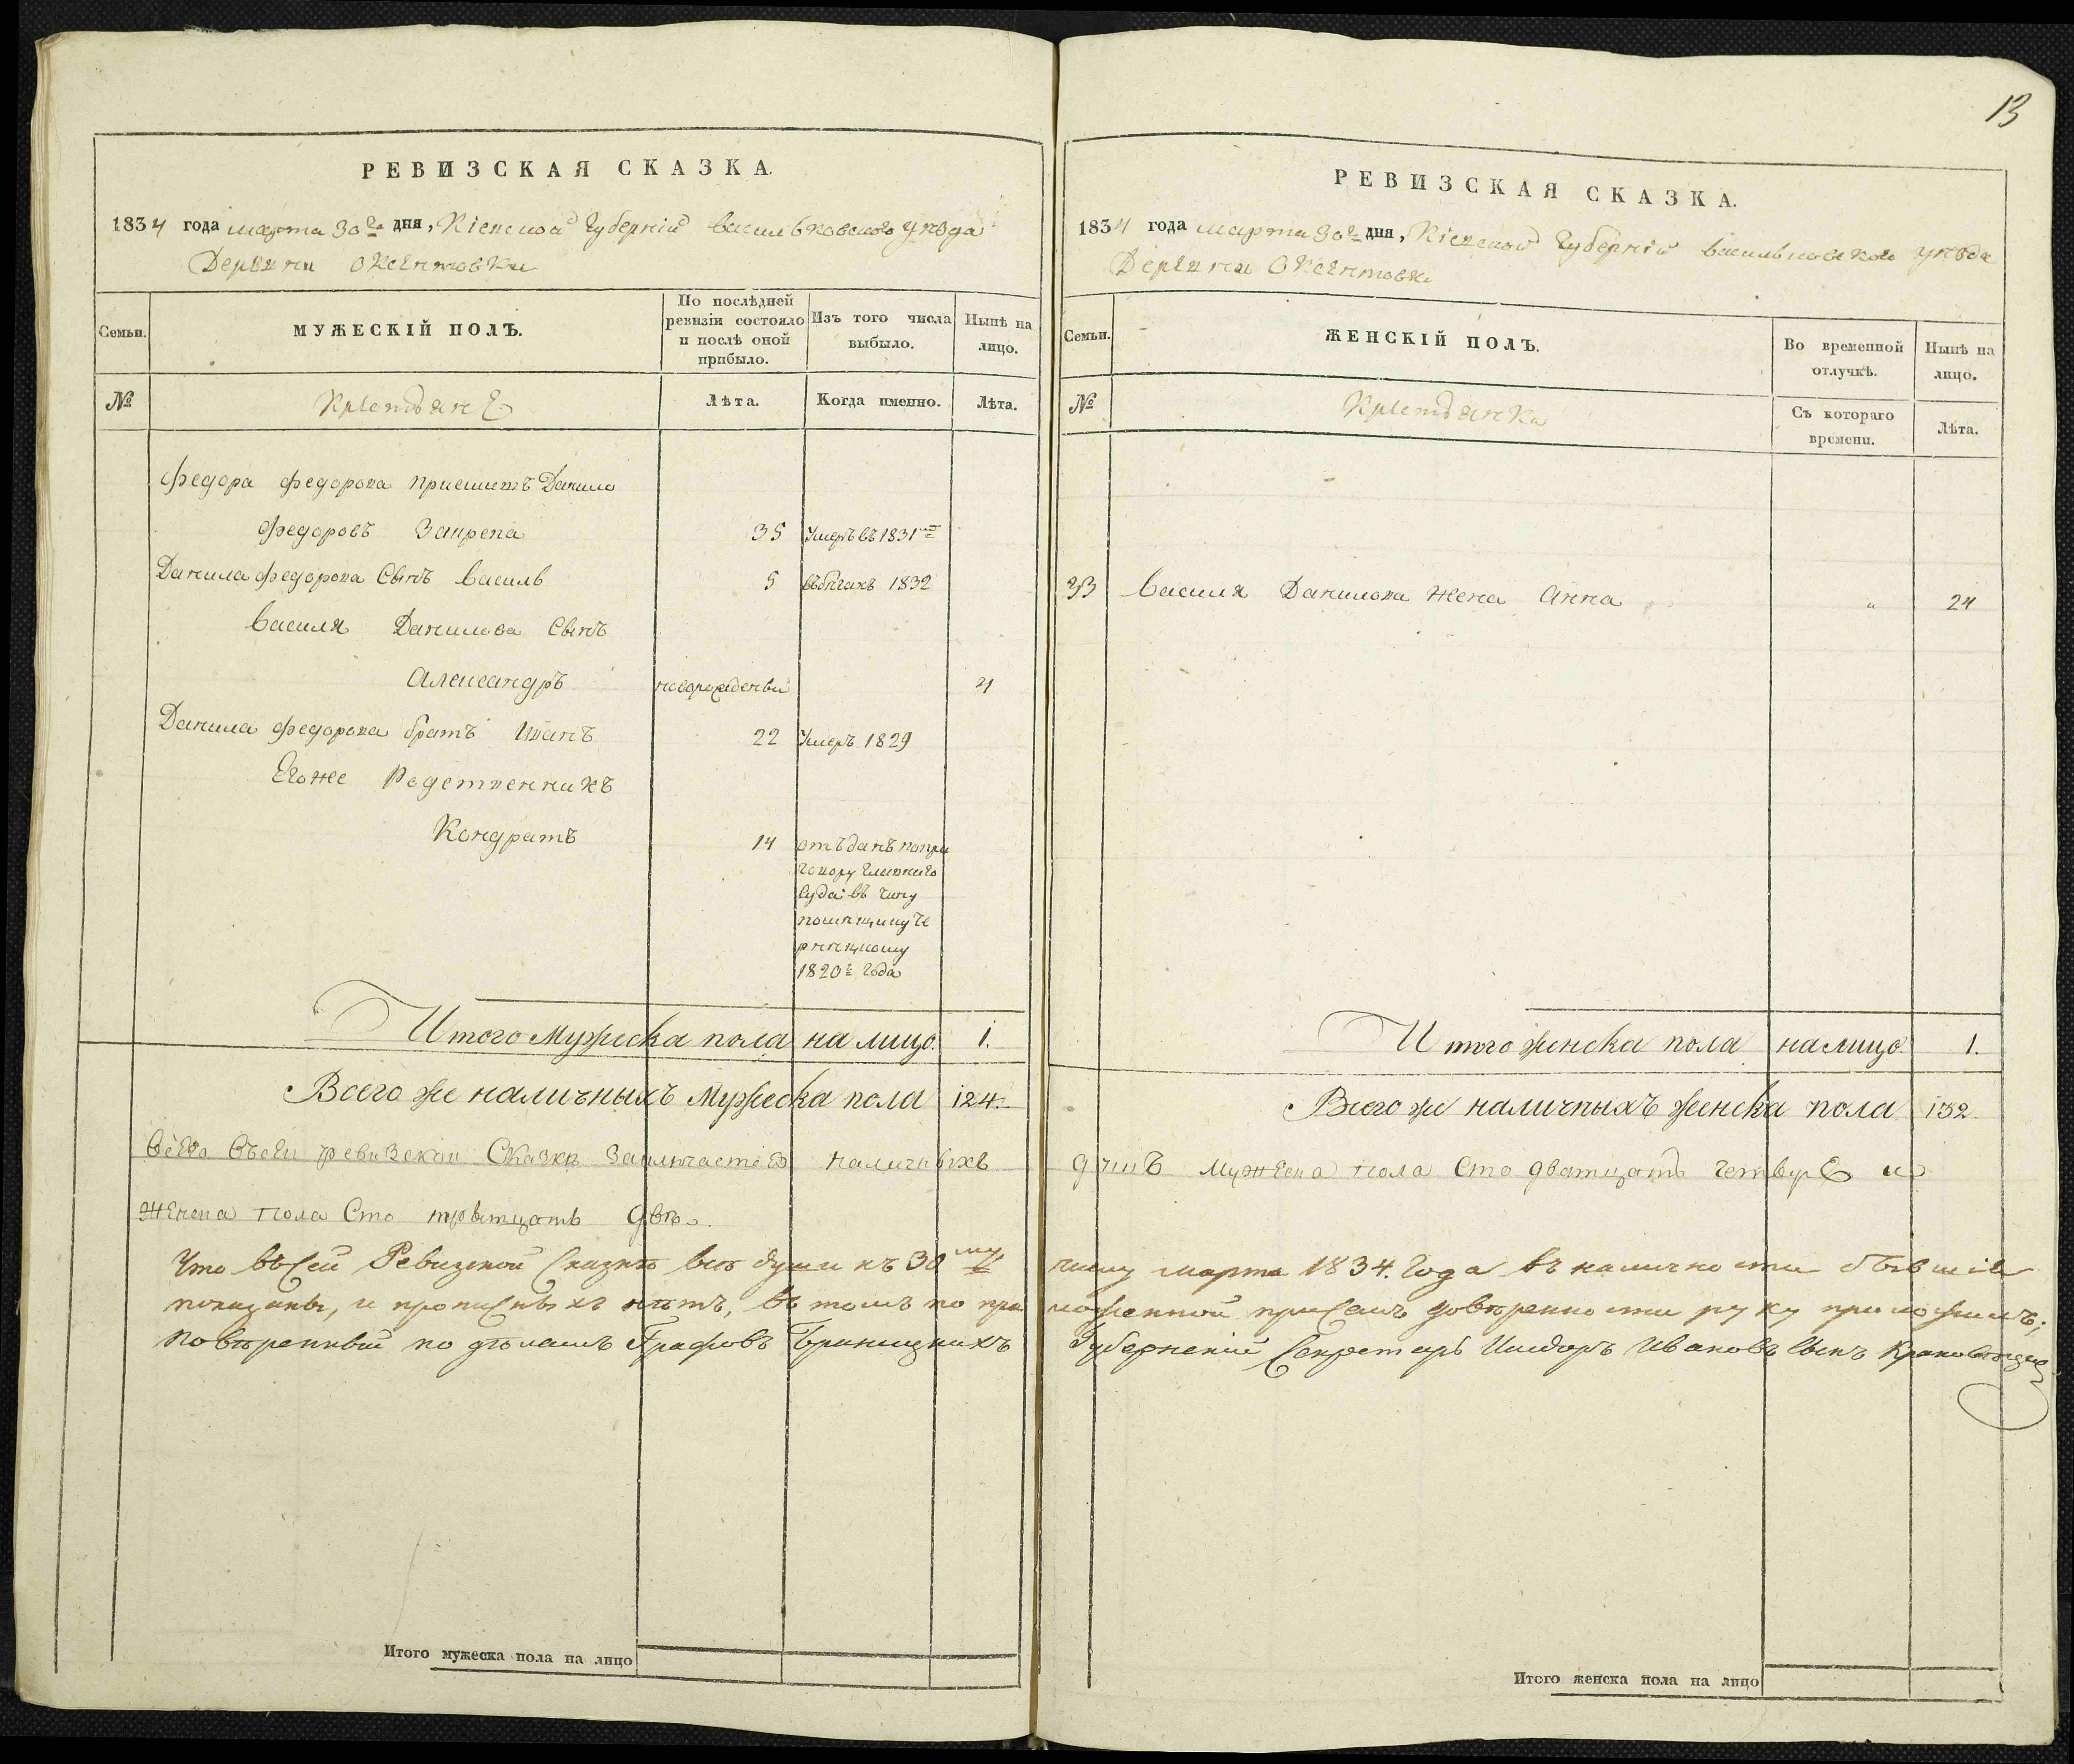 РЕВИЗСКАЯ СКАЗКА.
1834 года марта 30го дня, Кіевской Губерніи васильковского уѣзда
Деревни Оксентовки
Семьи.
МУЖЕСКІЙ ПОЛЪ.
По послѣдней
ревизіи состояло
и послѣ оной
прибыло.
Изъ того числа
выбыло.
Нынѣ на
лицо.
№
Крестьяне
Лѣта.
Когда именно.
Лѣта.
Федора Федорова приемышъ Данило
Федоровъ 35 Умеръ въ 1831мъ
Данила Федорова Сынъ василь 5 въ бѣгахъ 1832
василя Данилова Сынъ
Александръ новорожденный 4
Данила Федорова братъ Иванъ 22 Умеръ 1829
Егоже Родственникъ
Кондратъ 14 отъданъ попри
говору Главного
Суда въ
помѣщику Че
1820г года
Итого Мужеска пола на лицо. 1.
Всего же наличныхъ Мужеска пола 124.
всего въсей ревизской Сказкѣ Заключается наличныхъ
женска пола Сто тритцать двѣ.
Что въ Сей Ревизкой Сказкѣ всѣ души къ 30му
показаны, и прописныхъ нѣтъ, въ томъ по при
повѣренный по дѣламъ Графовъ Браницкихъ
Итого мужеска пола на лицо
13
РЕВИЗСКАЯ СКАЗКА.
1834 года марта 30го дня, Кіевской Губерніи васильковского уѣзда
Деревни Оксентовки
Семьи.
ЖЕНСКІЙ ПОЛЪ.
Во временной
отлучкѣ.
Нынѣ на
лицо.
№
Крестьянки
Съ котораго
времени.
Лѣта.
33 василя Данилова жена Анна " 24
Итого женска пола на лицо. 1.
Всего же наличныхъ женска пола 132.
душъ мужеска пола Сто дватцать четыре и
числу марта 1834. Года въ наличности бывшіе
ложенной присемъ довѣренности руку приложилъ;
Губернскій Секретарь Исидоръ Ивановъ Сынъ
Итого женска пола на лицо